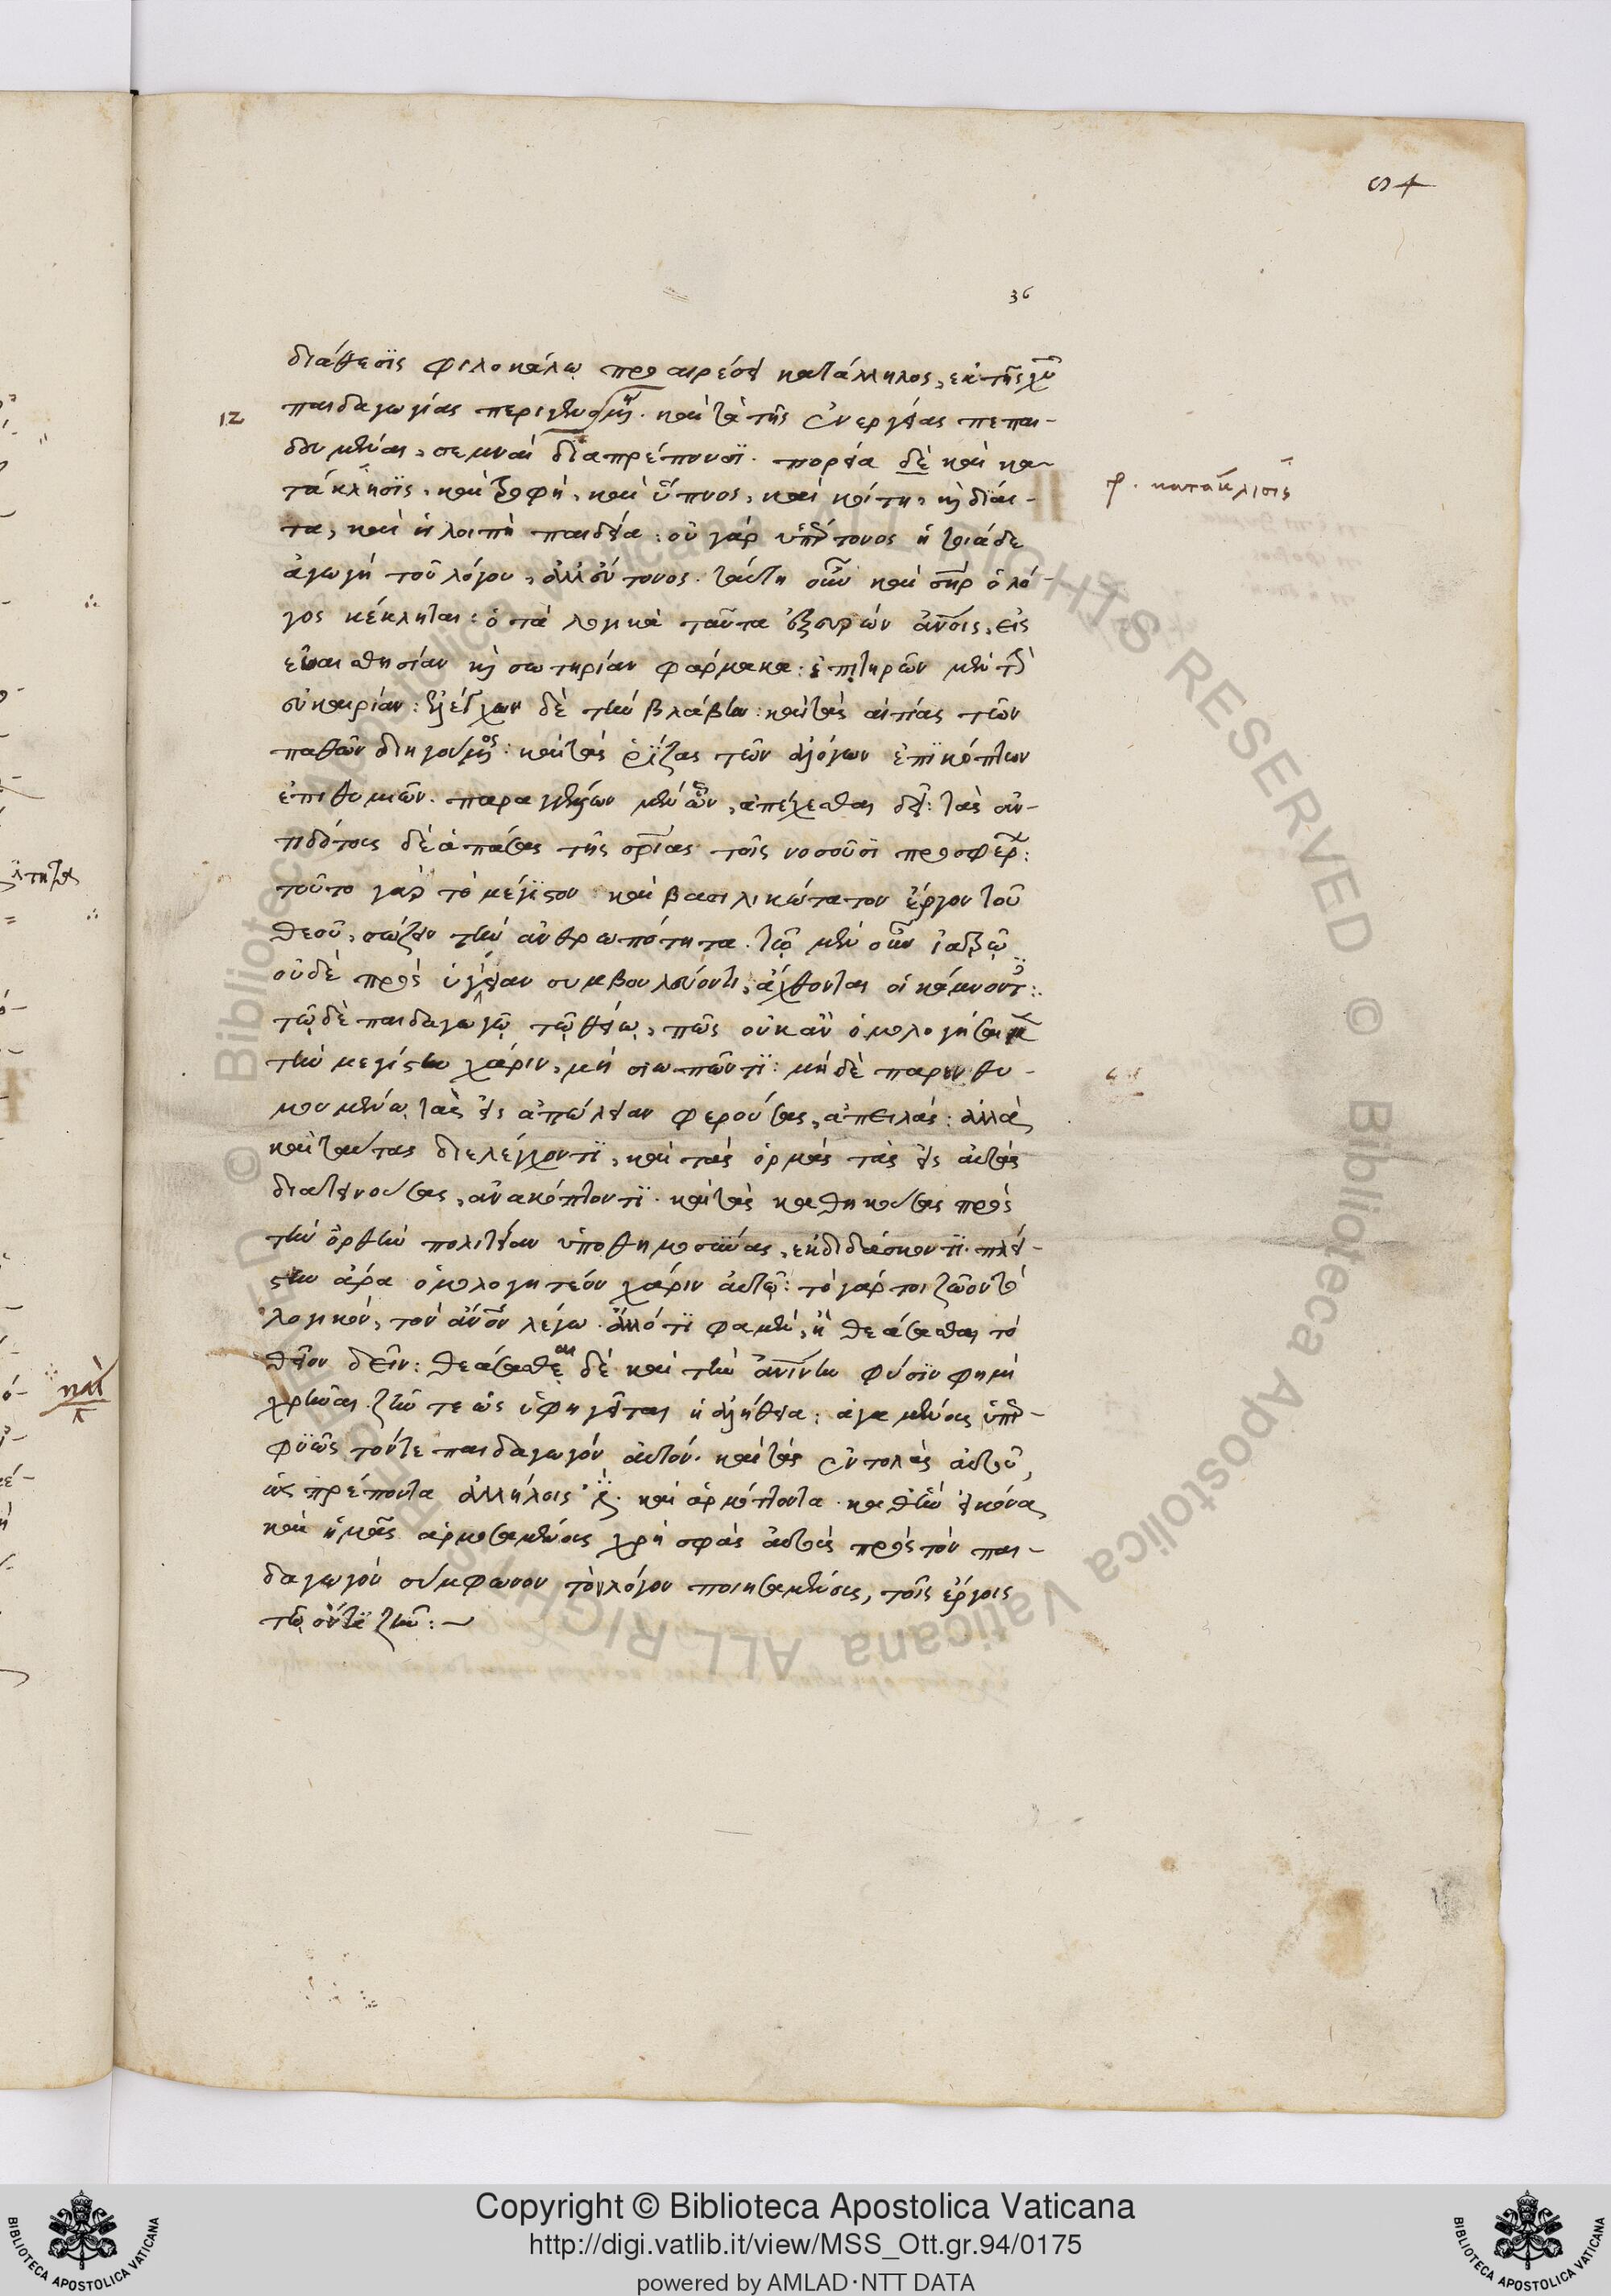 54
36
διάθεσϊς φιλοκάλῳ προαιρέσει κατάλληλος, ἐκ τῆς χυ
12
παιδαγωγίας περιγινομένη. καὶ τὰ τῆς ἐνεργείας πεπαι-
δευμέναι, σεμναὶ διαπρέπουσϊ. πορεία δὲ καὶ κα-
τάκλησϊς, καὶ τροφὴ, καὶ ὕπνος, καὶ κοίτη, κὶ δίαι-
ρ. κατάκλισις
τα, καὶ ἡ λοιπὴ παιδεία: οὐ γὰρ ὑπέρτονος ἡ τοιάδε
ἀγωγὴ τοῦ λόγου, ἀλλ' εὔτονος. ταύτη οὖν καὶ σηρ ὁ λό-
γος κέκληται: ὁ τὰ λογικὰ ταῦτα ἐξευρὼν ἀνοις, εἰς
εὐαισθησίαν κὶ σωτηρίαν φάρμακα: ἐπιτηρῶν μὲν τὴν
εὐκαιρίαν: ἐλέγχων δὲ τὴν βλάβην: καὶ τὰς αἰτίας τῶν
παθῶν διηγούμενος: καὶ τὰς ῥίζας τῶν ἀλόγων ἐπικόπτων
ἐπιθυμιῶν. παραγγέλλων μὲν ὧν, ἀπέχεσθαι δεῖ: τὰς ἀν-
τιδότους δὲ ἁπάσας τῆς σριας τοῖς νοσοῦσϊ προσφέρων:
τοῦτο γὰρ τὸ μέγϊστον καὶ βασιλικώτατον ἔργον τοῦ
θεοῦ, σώζειν τὴν ἀνθρωπότητα. τῷ μὲν οὖν ἰατρῷ
οὐδὲν πρὸς ὑγίειαν συμβουλεύοντι, ἄχθονται οἱ κάμνοντες:
τῷ δὲ παιδαγωγῷ τῷ θείῳ, πῶς οὐκ ἂν ὁμολογήσαιμεν
τὴν μεγίστην χάριν, μὴ σιωπῶντϊ: μὴ δὲ παρενθυ-
μουμένῳ τὰς εἰς ἀπώλειαν φερούσας, ἀπειλάς: ἀλλὰ
καὶ ταύτας διελέγχοντϊ, καὶ τὰς ὁρμὰς τὰς εἰς αὐτὰς
διατεινούσας, ἀνακόπτοντϊ. καὶ τὰς καθηκούσας πρὸς
τὴν ὀρθὴν πολιτείαν ὑποθημοσύνας, ἐκδιδάσκοντϊ. πλεί-
στην ἄρα ὁμολογητέον χάριν αὐτῷ: τὸ γάρ τοι ζῶον τὸ
λογικὸν, τὸν ἀνον λέγω. ἄλλό τϊ φαμὲν, ἢ θεάσασθαι τὸ
θεῖον δεῖν: θεάσασθαι δὲ καὶ τὴν ἀνινην φύσϊν φημὶ
χρῆναι. ζῆν τε ὡς ὑφηγεῖται ἡ ἀλήθεια: ἀγαμένους ὑπερ-
φυῶς τόν τε παιδαγωγὸν αὐτὸν. καὶ τὰς ἐντολὰς αὐτοῦ,
ὡς πρέποντα ἀλλήλοις κὶ καὶ ἁρμόττοντα. καθ' ἣν εἰκόνα
καὶ ἡμᾶς ἁρμοσαμένους χρὴ σφᾶς αὐτοὺς πρὸς τὸν παι-
δαγωγὸν σύμφωνον τὸν λόγον ποιησαμένους, τοῖς ἔργοις
τῷ ὄντϊ ζῆν: ~
Copyright © Biblioteca Apostolica Vaticana
http://digi.vatlib.it/view/MSS_Ott.gr.94/0175
powered by AMLAD·NTT DATA